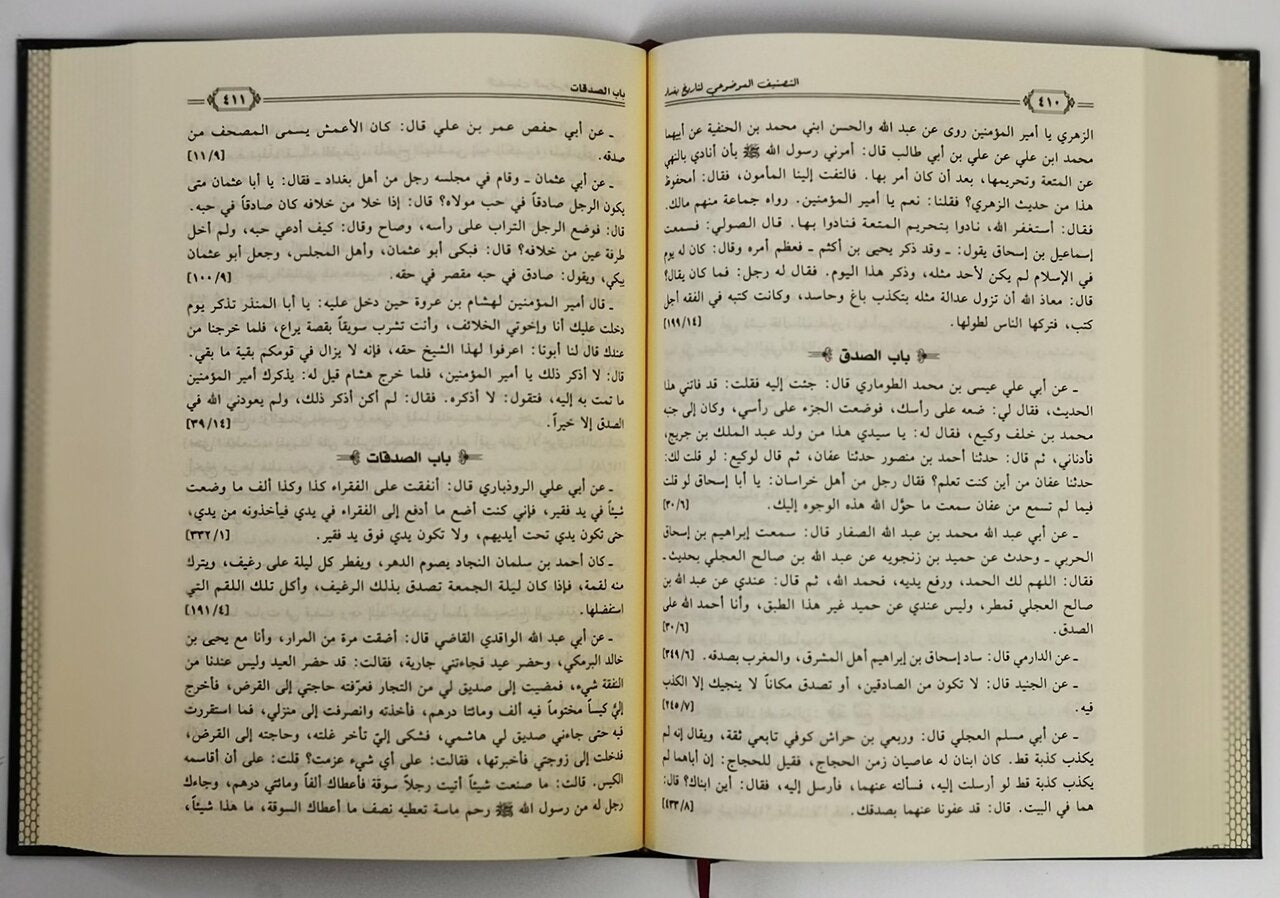 ٤١٠
التصنيف الموضوعي لتاريخ بغداد
الزهري يا أمير المؤمنين روى عن عبد الله والحسن ابني محمد بن الحنفية عن أبيهما
محمد ابن علي عن علي بن أبي طالب قال: أمرني رسول الله ﷺ بأن أنادي بالنهي
عن المتعة وتحريمها، بعد أن كان أمر بها. فالتفت إلينا المأمون، فقال: أمحفوظ
هذا من حديث الزهري؟ فقلنا: نعم يا أمير المؤمنين. رواه جماعة منهم مالك.
فقال: أستغفر الله، نادوا بتحريم المتعة فنادوا بها. قال الصولي: فسمعت
إسماعيل بن إسحاق يقول: ـ وقد ذكر يحيى بن أكثم ـ فعظم أمره وقال: كان له يوم
في الإسلام لم يكن لأحد مثله، وذكر هذا اليوم. فقال له رجل: فما كان يقال؟
قال: معاذ الله أن تزول عدالة مثله بتكذب باغ وحاسد، وكانت كتبه في الفقه أجل
كتب، فتركها الناس لطولها. [١٩٩/١٤]
باب الصدق
ـ عن أبي علي عيسى بن محمد الطوماري قال: جئت إليه فقلت: قد فاتني هذا
الحديث، فقال لي: ضعه على رأسك، فوضعت الجزء على رأسي، وكان إلى جنبه
محمد بن خلف وكيع، فقال له: يا سيدي هذا من ولد عبد الملك بن جريج،
فأدناني، ثم قال: حدثنا أحمد بن منصور حدثنا عفان، ثم قال لوكيع: لو قلت لك:
حدثنا عفان من أين كنت تعلم؟ فقال رجل من أهل خراسان: يا أبا إسحاق لو قلت
فيما لم تسمع من عفان سمعت ما حوَّل الله هذه الوجوه إليك. [٣٠/٦]
ـ عن أبي عبد الله محمد بن عبد الله الصفار قال: سمعت إبراهيم بن إسحاق
الحربي ـ وحدث عن حميد بن زنجويه عن عبد الله بن صالح العجلي بحديث ـ
فقال: اللهم لك الحمد، ورفع يديه، فحمد الله، ثم قال: عندي عن عبد الله بن
صالح العجلي قمطر، وليس عندي عن حميد غير هذا الطبق، وأنا أحمد الله على
الصدق. [٣٠/٦]
ـ عن الدارمي قال: ساد إسحاق بن إبراهيم أهل المشرق، والمغرب بصدقه. [٣٤٩/٦]
ـ عن الجنيد قال: لا تكون من الصادقين، أو تصدق مكاناً لا ينجيك إلا الكذب
فيه. [٢٤٥/٧]
ـ عن أبي مسلم العجلي قال: وربعي بن حراش كوفي تابعي ثقة، ويقال إنه لم
يكذب كذبة قط. كان ابنان له عاصيان زمن الحجاج، فقيل للحجاج: إن أباهما لم
يكذب كذبة قط لو أرسلت إليه، فسألته عنهما، فأرسل إليه، فقال: أين ابناك؟ قال:
هما في البيت. قال: قد عفونا عنهما بصدقك. [٤٣٣/٨]
باب الصدقات
٤١١
ـ عن أبي حفص عمر بن علي قال: كان الأعمش يسمى المصحف من
صدقه. [١١/٩]
ـ عن أبي عثمان ـ وقام في مجلسه رجل من أهل بغداد ـ فقال: يا أبا عثمان متى
يكون الرجل صادقاً في حب مولاه؟ قال: إذا خلا من خلافه كان صادقاً في حبه.
قال: فوضع الرجل التراب على رأسه، وصاح وقال: كيف أدعي حبه، ولم أخل
طرفة عين من خلافه؟ قال: فبكى أبو عثمان، وأهل المجلس، وجعل أبو عثمان
يبكي، ويقول: صادق في حبه مقصر في حقه. [١٠٠/٩]
ـ قال أمير المؤمنين لهشام بن عروة حين دخل عليه: يا أبا المنذر تذكر يوم
دخلت عليك أنا وإخوتي الخلائف، وأنت تشرب سويقاً بقصة يراع، فلما خرجنا من
عندك قال لنا أبونا: اعرفوا لهذا الشيخ حقه، فإنه لا يزال في قومكم بقية ما بقي.
قال: لا أذكر ذلك يا أمير المؤمنين، فلما خرج هشام قيل له: يذكرك أمير المؤمنين
ما تمت به إليه، فتقول: لا أذكره. فقال: لم أكن أذكر ذلك، ولم يعودني الله في
الصدق إلا خيراً. [٣٩/١٤]
باب الصدقات
ـ عن أبي علي الروذباري قال: أنفقت على الفقراء كذا وكذا ألف ما وضعت
شيئاً في يد فقير، فإني كنت أضع ما أدفع إلى الفقراء في يدي فيأخذونه من يدي،
حتى تكون يدي تحت أيديهم، ولا تكون يدي فوق يد فقير. [٣٣٢/١]
ـ كان أحمد بن سلمان النجاد يصوم الدهر، ويفطر كل ليلة على رغيف، ويترك
منه لقمة، فإذا كان ليلة الجمعة تصدق بذلك الرغيف، وأكل تلك اللقم التي
استفضلها. [١٩١/٤]
ـ عن أبي عبد الله الواقدي القاضي قال: أضقت مرة من المرار، وأنا مع يحيى بن
خالد البرمكي، وحضر عيد فجاءتني جارية، فقالت: قد حضر العيد وليس عندنا من
النفقة شيء، فمضيت إلى صديق لي من التجار فعرّفته حاجتي إلى القرض، فأخرج
إليَّ كيساً مختوماً فيه ألف ومائتا درهم، فأخذته وانصرفت إلى منزلي، فما استقررت
فيه حتى جاءني صديق لي هاشمي، فشكى إليّ تأخر غلته، وحاجته إلى القرض،
فدخلت إلى زوجتي فأخبرتها، فقالت: على أي شيء عزمت؟ قلت: على أن أقاسمه
الكيس. قالت: ما صنعت شيئاً أتيت رجلاً سوقة فأعطاك ألفاً ومائتي درهم، وجاءك
رجل له من رسول الله ﷺ رحم ماسة تعطيه نصف ما أعطاك السوقة، ما هذا شيئاً،